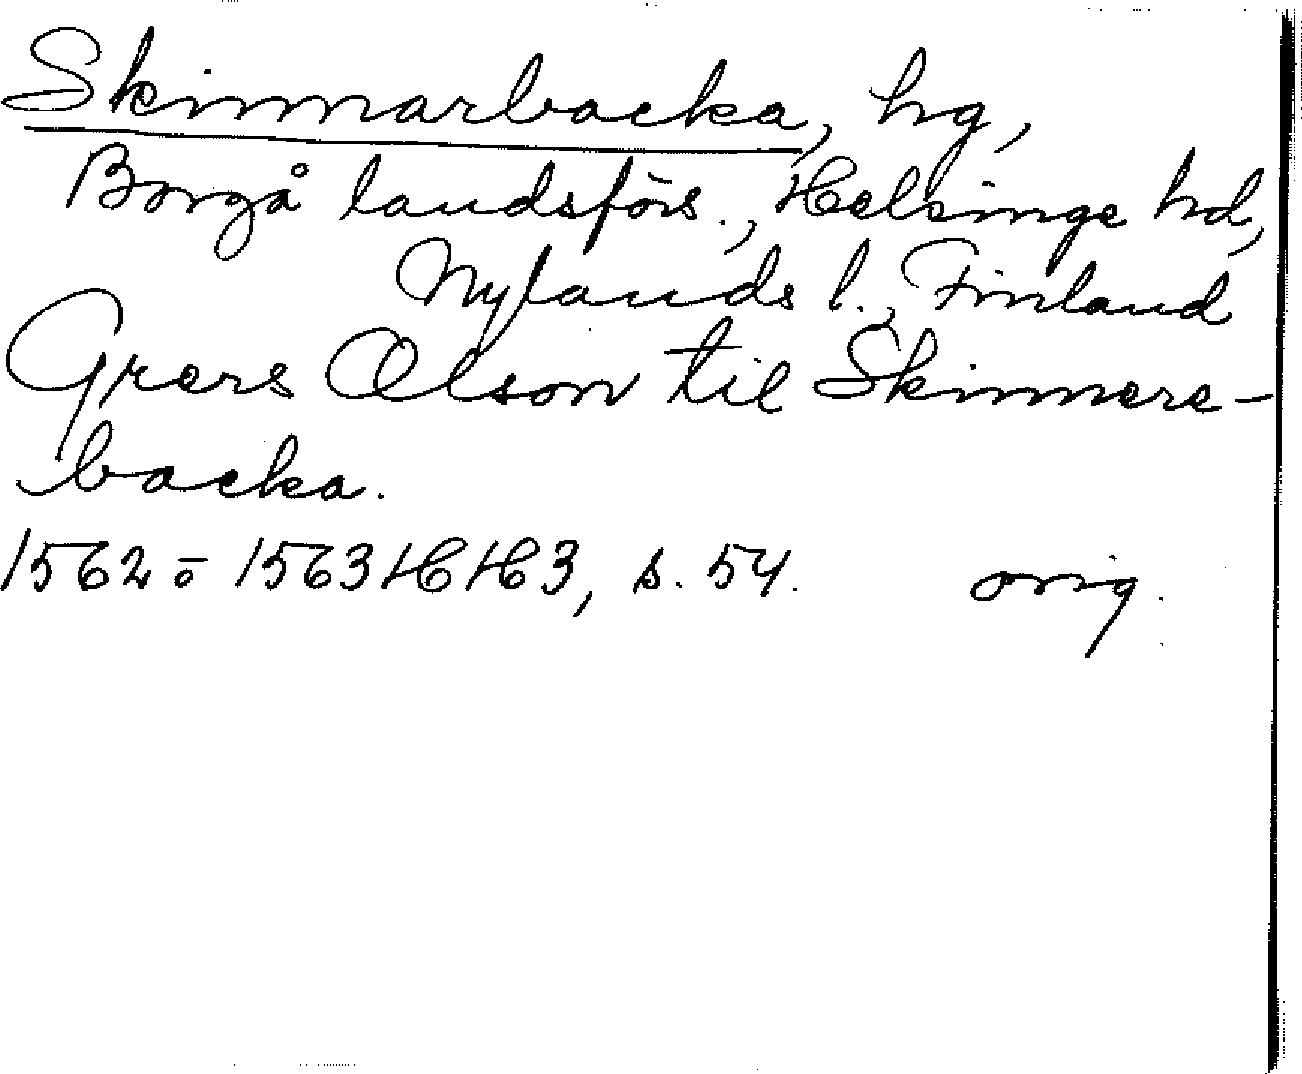 Skinnarbacka, hg,
Borgå landsförs., Helsinge hd,
Nylands l., Finland
Grers Olson til Skinnere-
backa.
1562 ō 1563 HH3, s. 54. orig.